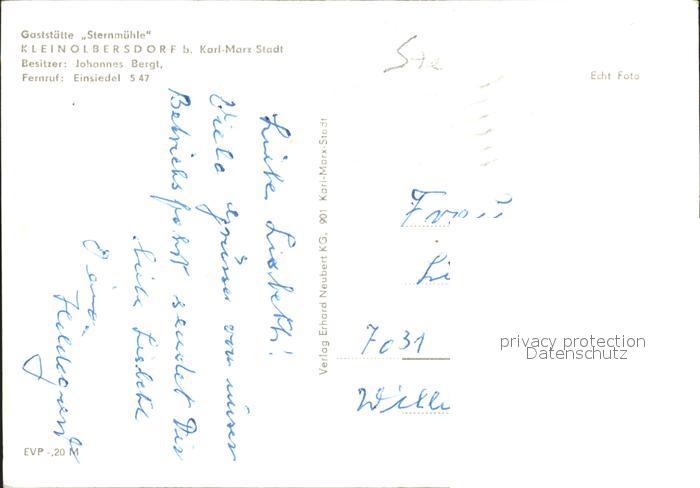 Gaststätte „Sternmühle"
KLEINOLBERSDORF b. Karl-Marx-Stadt
Besitzer: Johannes Bergt,
Fernruf: Einsiedel 547
Echt Foto
Liebe Liesbeth!
Viele Grüsse von unser
Betriebsfahrt sendet Dir
liebe Liesbeth
Deine
Hildegard
EVP -,20 M
Verlag Erhard Neubert KG, 901 Karl-Marx-Stadt
Ste
Frau
Li
7031
Wille
privacy protection
Datenschutz